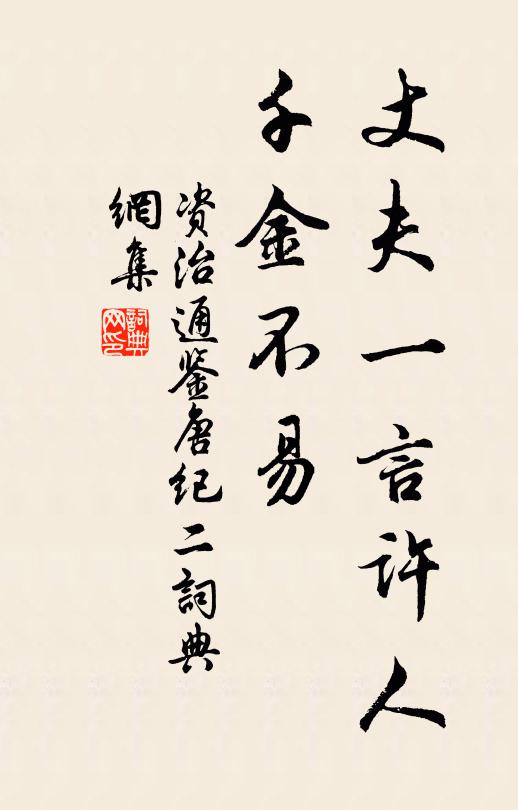 丈夫一言許人
千金不易
资治通鉴唐纪二詞典
網集
詞典
网印